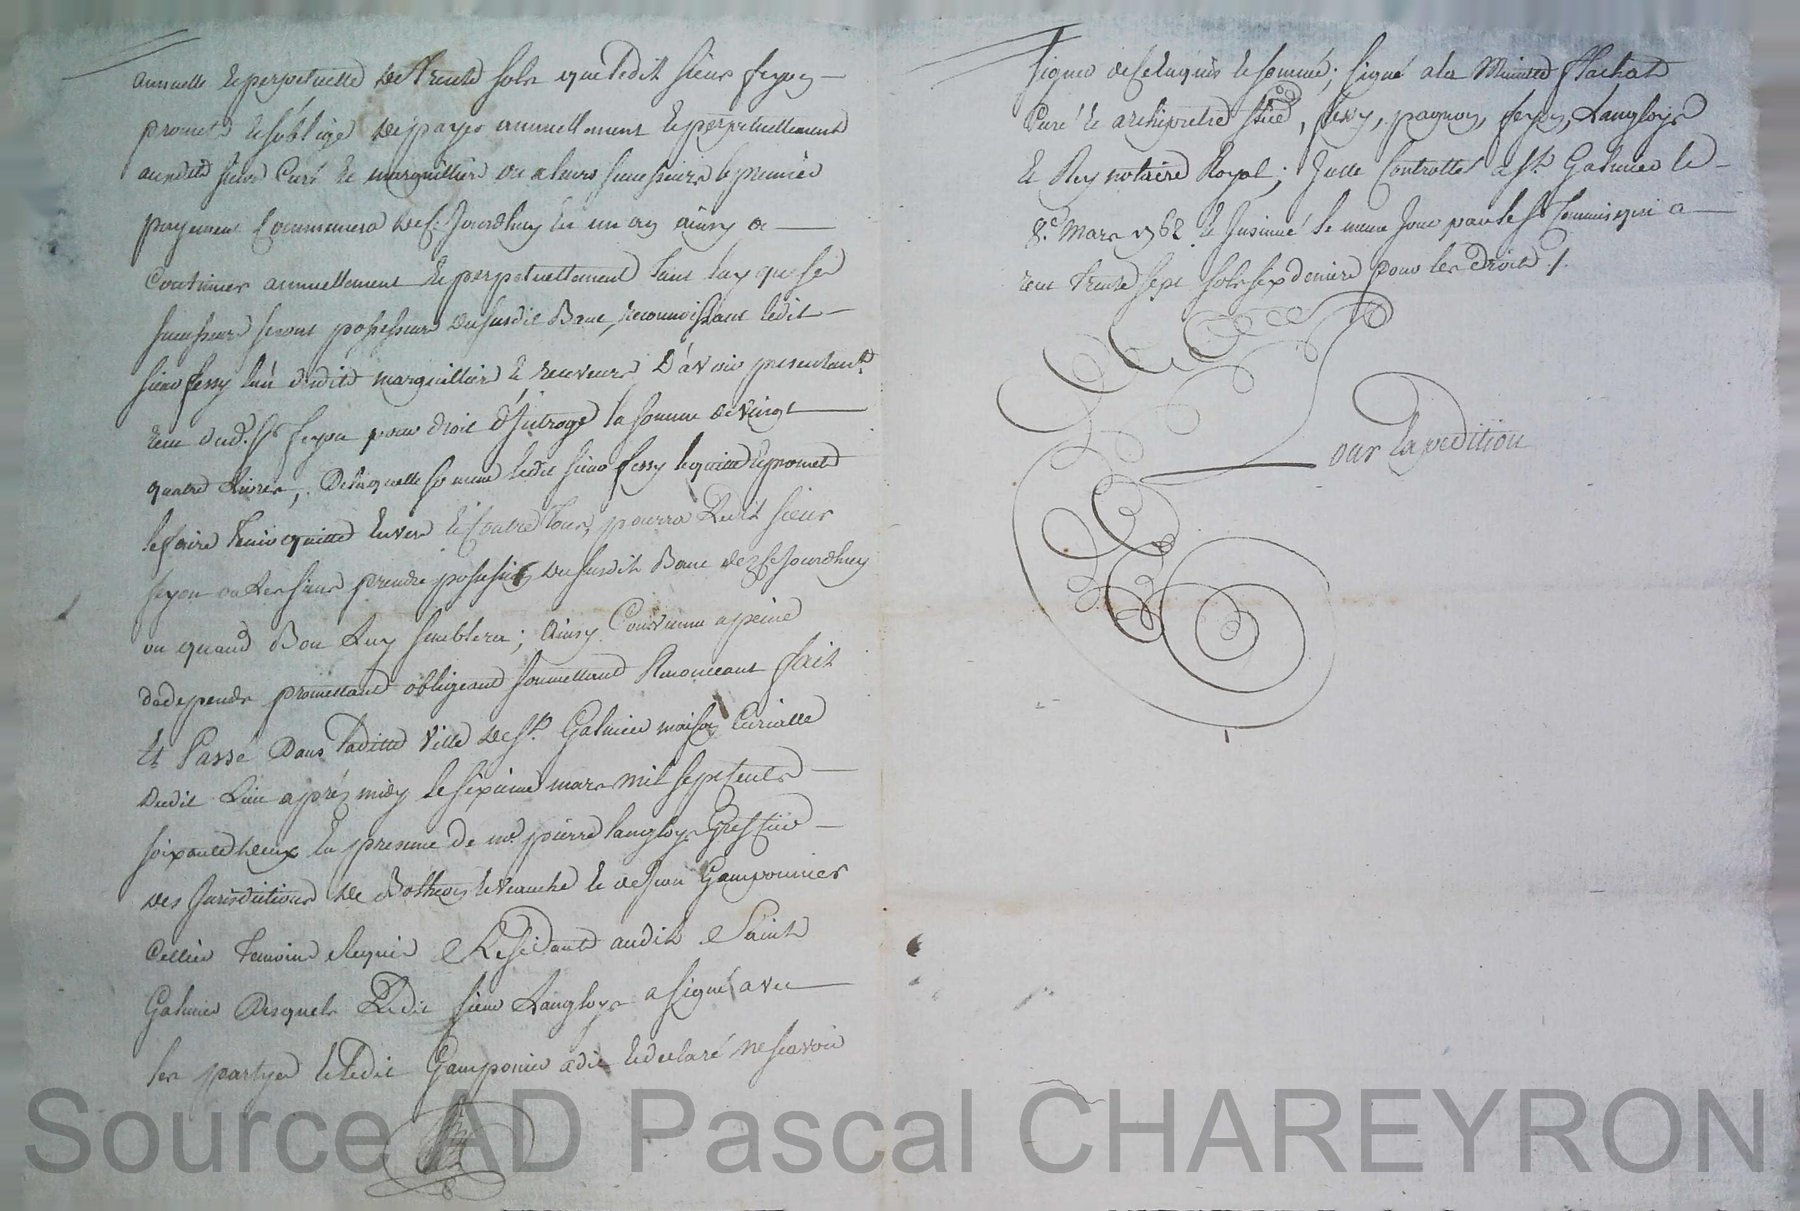 annuelle et perpetuelle de trente sols que ledit sieur feyon
promet et s'oblige de payer annuellement et perpetuellement
audit sieur Curé et marguillier ou a leurs successeurs le premier
payement Commencera de ce Jourdhuy en un an ainsy a
Continuer annuellement et perpetuellement tant luy que ses
successeurs seront possesseurs du susdit Banc, reconnoissant ledit
sieur fessy marguillier et receveur D'avoir presentemt.
receu dud. sr. feyon pour droit d'Introge la somme de vingt
quatre Livres, De laquelle somme ledit sieur fessy le quitte et promet
le faire tenir quitte envers et Contre tous, pourra Ledit sieur
feyon ou Les siens prendre possession du susdit Banc dez ce Jourdhuy
ou quand Bon Luy semblera; Ainsy Convenu a peine
de depends promettant obligeant soumettant Renonceant fait
Et Passé Dans laditte Ville de St. Galmier maison Curialle
dudit Lieu aprés midy le sixieme mars mil sept cents
soixante deux En presence de me. pierre langloys Greffier
des Jurisdictions de Botheon le et de Jean Gamponnier
Cellier temoins Requis et Residants audit Saint
Galmier desquels Ledit sieur Langloys a signé avec
les partyes et Ledit Gamponier a dit et declaré ne scavoir
signer de ce enquis et sommé; signé a la Minutte flachat
Curé et archipretre, fessy, pagnon, feyon, Langloys
Et Rey notaire Royal; Controllé a St. Galmier le
8e. Mars 1762. et Insinué le meme Jour par le sr. Commis qui a
receu trente sept sols six deniers pour les droits ./.
par Expedition
Source AD Pascal CHAREYRON